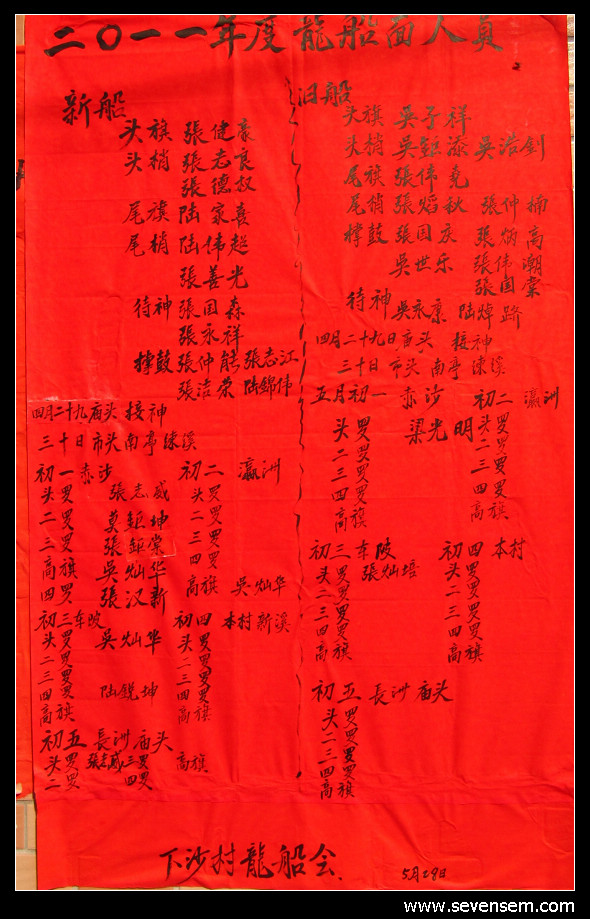 二〇一一年度龍船面人員
新船
头旗 張健豪
头梢 張志良
張德权
尾旗 陆家喜
尾梢 陆伟超
張善光
待神 張国森
張永祥
撑鼓 張仲能 張志江
張洁荣 陆錦伟
四月二十九庙头 接神
三十日市头南亭 涑溪
初一赤沙
头罗 張志威
二罗 莫鉅坤
三罗 張鉅棠
高旗 吳灿华
四罗 張汉新
初二 瀛洲
头罗
二罗
三罗
四罗
高旗 吳灿华
初三车陂
头罗 吳灿华
二罗
三罗
四罗 陆銳坤
高旗
初四 本村新溪
头罗
二罗
三罗
四罗
高旗
初五 長洲庙头
头罗 張志威 三罗 高旗
二罗 四罗
旧船
头旗 吳子祥
头梢 吳鉅添 吳浩釗
尾旗 張伟尧
尾梢 張焰秋 張仲楠
撑鼓 張国庆 張炳高
吳世乐 張伟潮
張国棠
待神 吳永康 陆焯
四月二十九日庙头 接神
三十日 市头 南亭 涑溪
五月初一 赤沙
头罗 梁光明
二罗
三罗
四罗
高旗
初二 瀛洲
头罗
二罗
三罗
四罗
高旗
初三车陂
头罗 張灿培
二罗
三罗
四罗
高旗
初四 本村
头罗
二罗
三罗
四罗
高旗
初五 長洲 庙头
头罗
二罗
三罗
四罗
高旗
下沙村龍船会
5月29日
www.sevensem.com